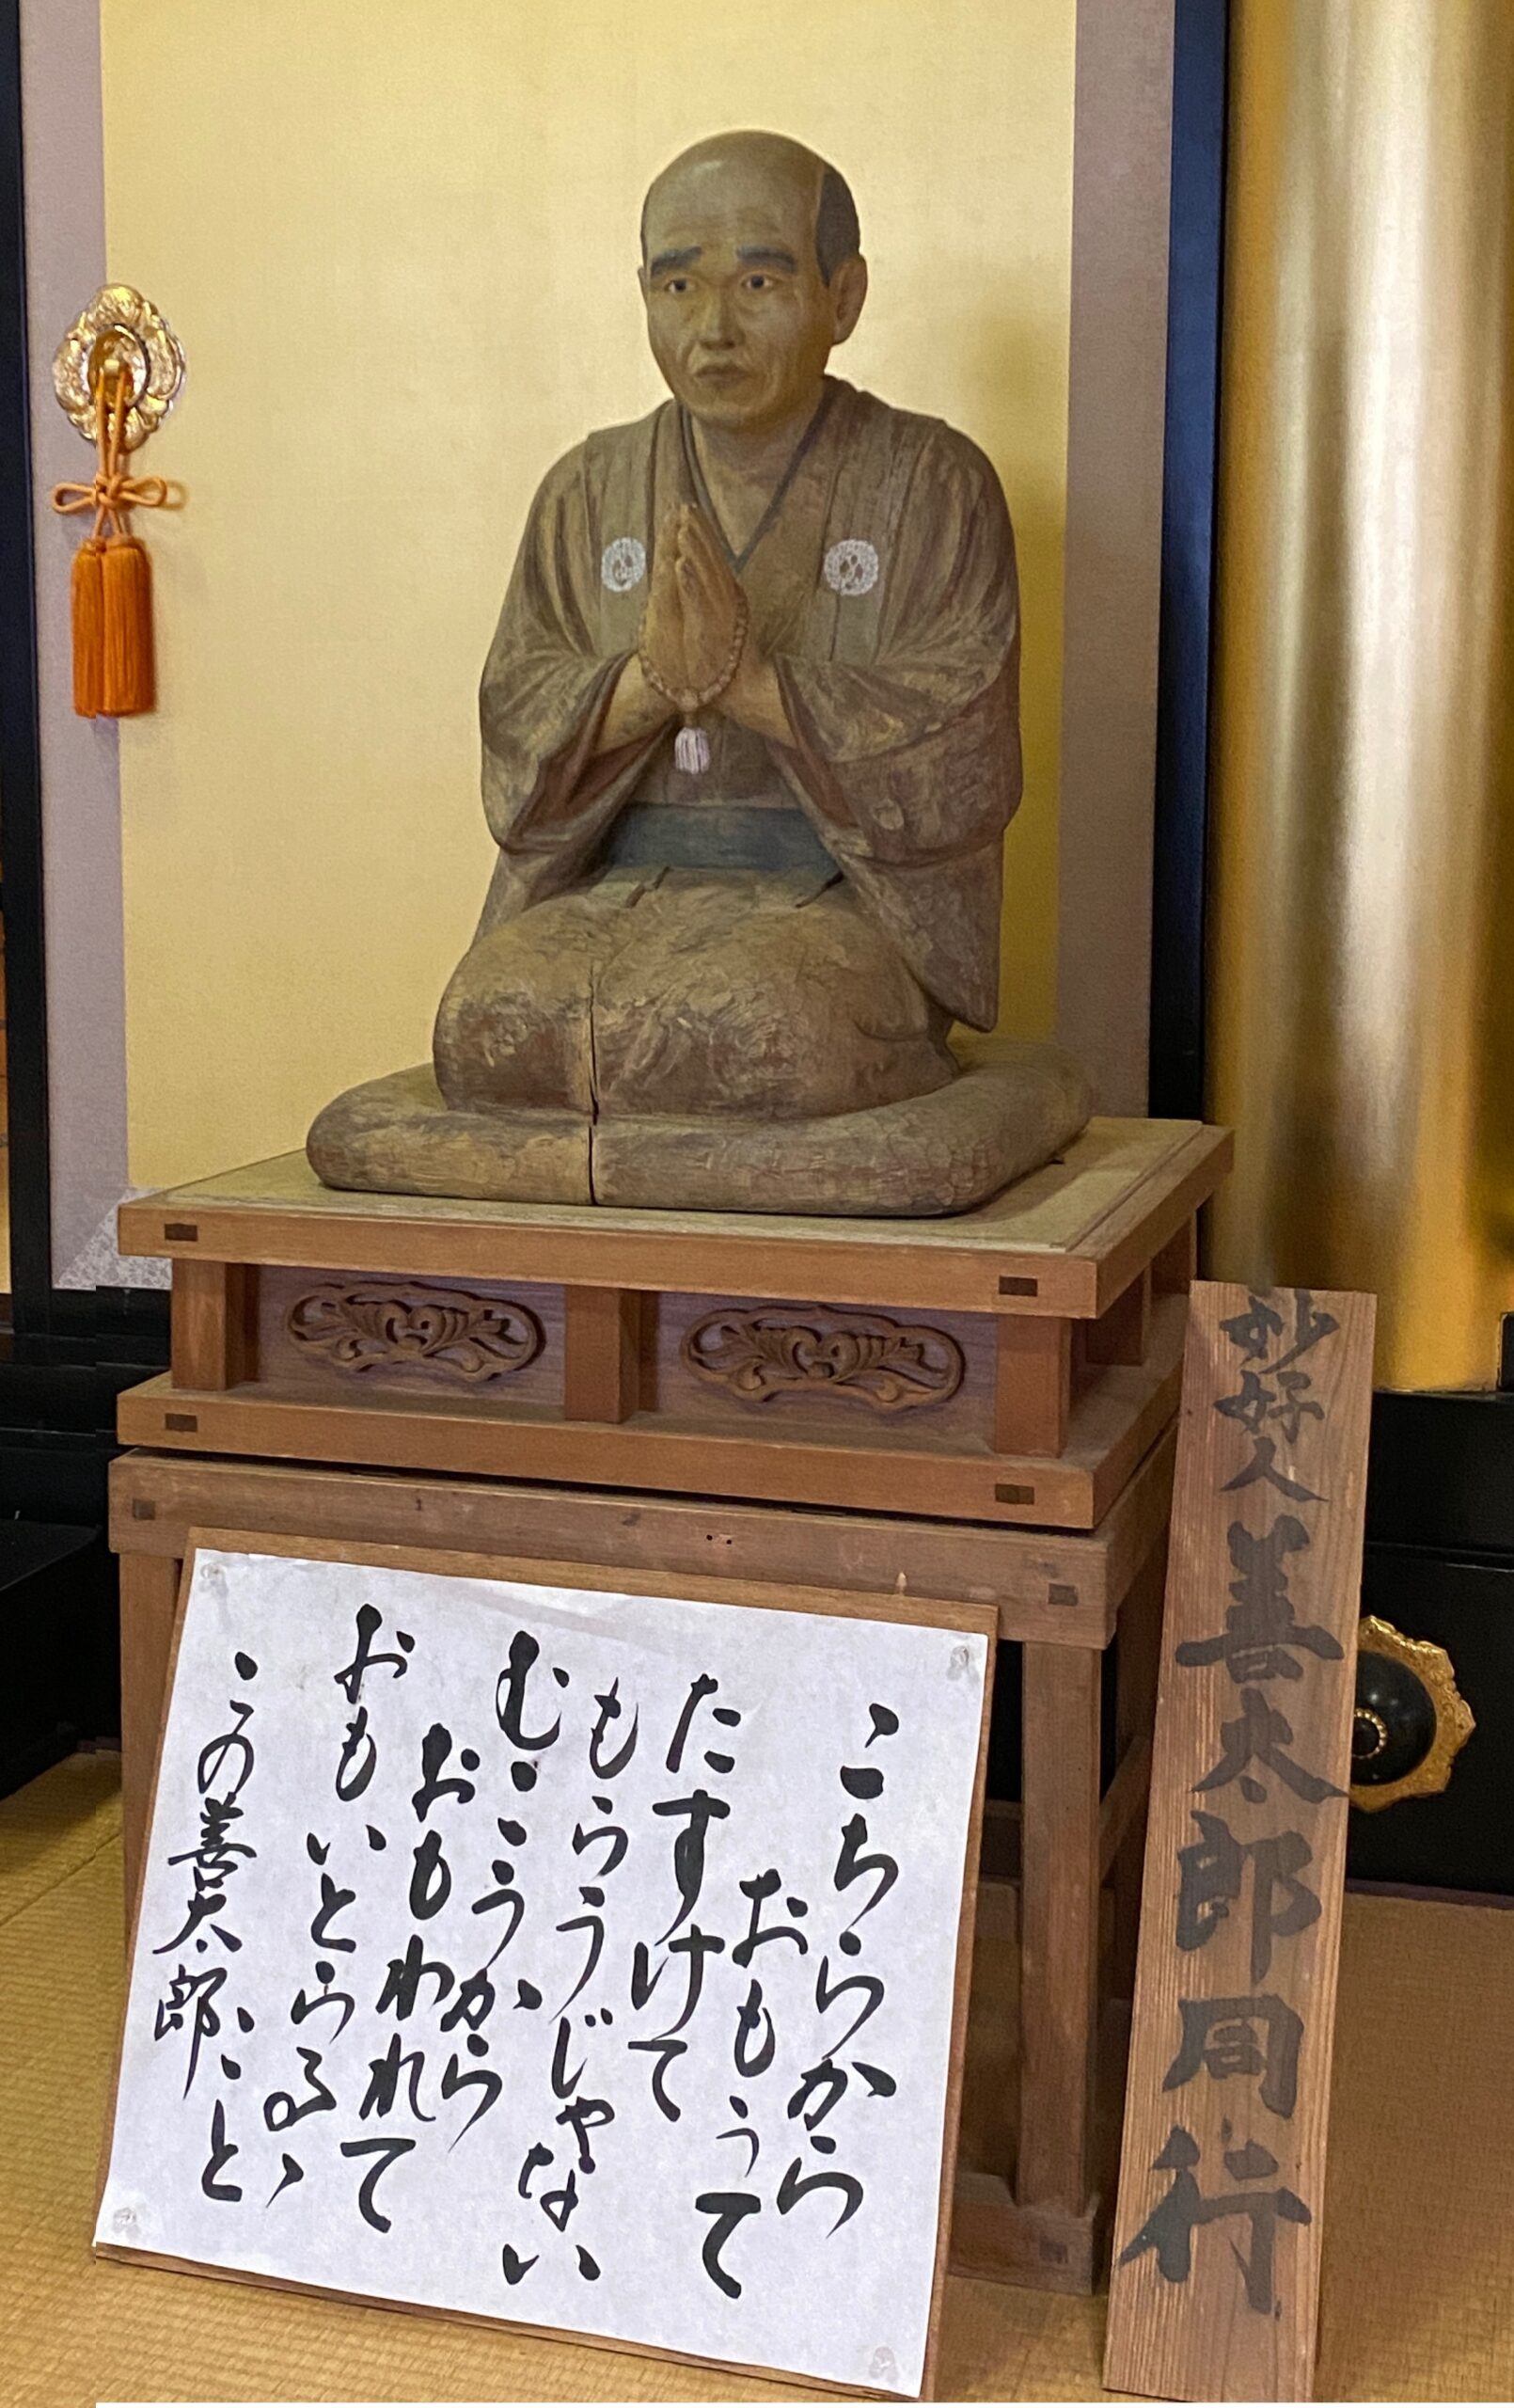 妙好人善太郎同行
こちらから
おもうて
たすけて
もらうじゃない
むこうから
おもわれて
おもいとらるゝ
この善太郎こと